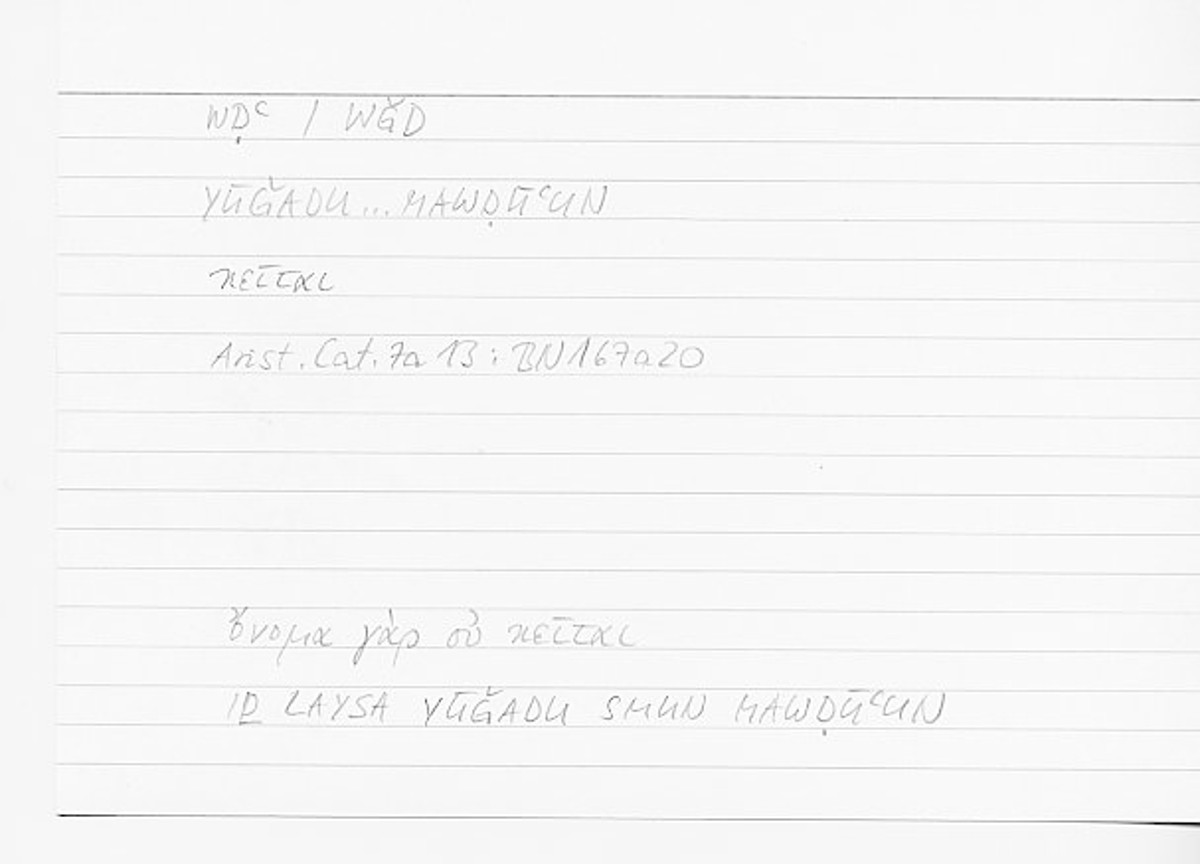 WḌʿ / WǦD
YŪǦADU ... MAWḌŪʿUN
κεῖται
Arist. Cat. 7a 13 : BN 167a20
ὄνομα γὰρ οὐ κεῖται
IḎ LAYSA YŪǦADU SMUN MAWḌŪʿUN